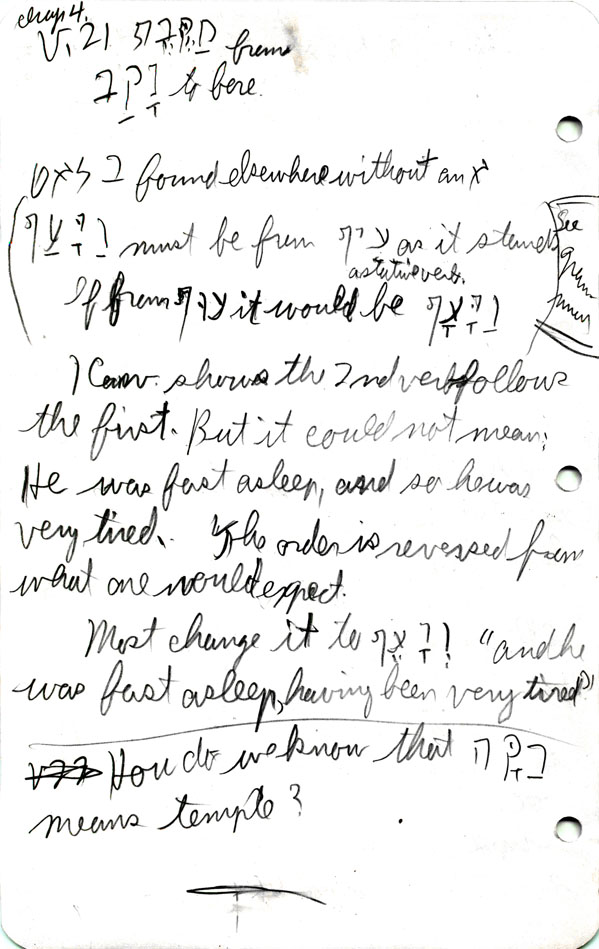 Chap 4.
V. 21 מַקֶּבֶת from
נָקַב to bore.
בלאט found elsewhere without an א
וַיָּעַף must be from עיף as it stands
a stative verb.
See
grammar
If from עוף it would be וַיָּעָף
ו Conv. shows the 2nd verb follows
the first. But it could not mean:
He was fast asleep, and so he was
very tired. The order is reversed from
what one would expect.
Most change it to וְיָעֵף "and he
was fast asleep, having been very tired"
How do we know that רַקָּה
means temple?